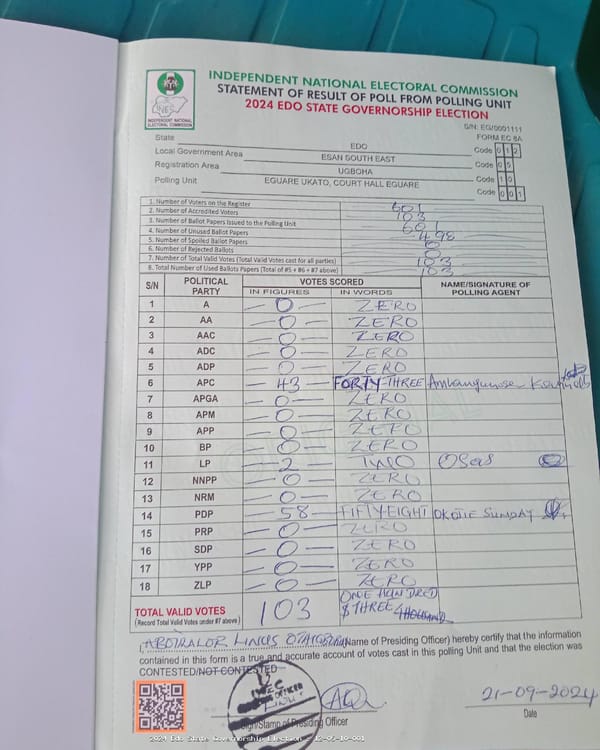 INDEPENDENT NATIONAL ELECTORAL COMMISSION
STATEMENT OF RESULT OF POLL FROM POLLING UNIT
2024 EDO STATE GOVERNORSHIP ELECTION
INDEPENDENT NATIONAL ELECTORAL COMMISSION
S/N: EG/0001111
FORM EC 8A
State EDO Code 0 1 2
Local Government Area ESAN SOUTH EAST Code 0 5
Registration Area UGBOHA Code 1 0
Polling Unit EGUARE UKATO, COURT HALL EGUARE Code 0 0 1
1. Number of Voters on the Register 601
2. Number of Accredited Voters 103
3. Number of Ballot Papers Issued to the Polling Unit 601
4. Number of Unused Ballot Papers 498
5. Number of Spoiled Ballot Papers 0
6. Number of Rejected Ballots 0
7. Number of Total Valid Votes (Total Valid Votes cast for all parties) 103
8. Total Number of Used Ballots Papers (Total of #5 + #6 + #7 above) 103
S/N POLITICAL PARTY VOTES SCORED NAME/SIGNATURE OF POLLING AGENT
IN FIGURES IN WORDS
1 A 0 ZERO
2 AA 0 ZERO
3 AAC 0 ZERO
4 ADC 0 ZERO
5 ADP 0 ZERO
6 APC 43 FORTY-THREE
7 APGA 0 ZERO
8 APM 0 ZERO
9 APP 0 ZERO
10 BP 0 ZERO
11 LP 2 TWO Osas
12 NNPP 0 ZERO
13 NRM 0 ZERO
14 PDP 58 FIFTY EIGHT OKOJIE SUNDAY
15 PRP 0 ZERO
16 SDP 0 ZERO
17 YPP 0 ZERO
18 ZLP 0 ZERO
TOTAL VALID VOTES 103 ONE HUNDRED
(Record Total Valid Votes under #7 above) & THREE
I, LINUS (Name of Presiding Officer) hereby certify that the information
contained in this form is a true and accurate account of votes cast in this polling Unit and that the election was
CONTESTED/NOT CONTESTED
21-09-2024
Sign/Stamp of Presiding Officer Date
2024 Edo State Governorship Election - 12-05-10-001